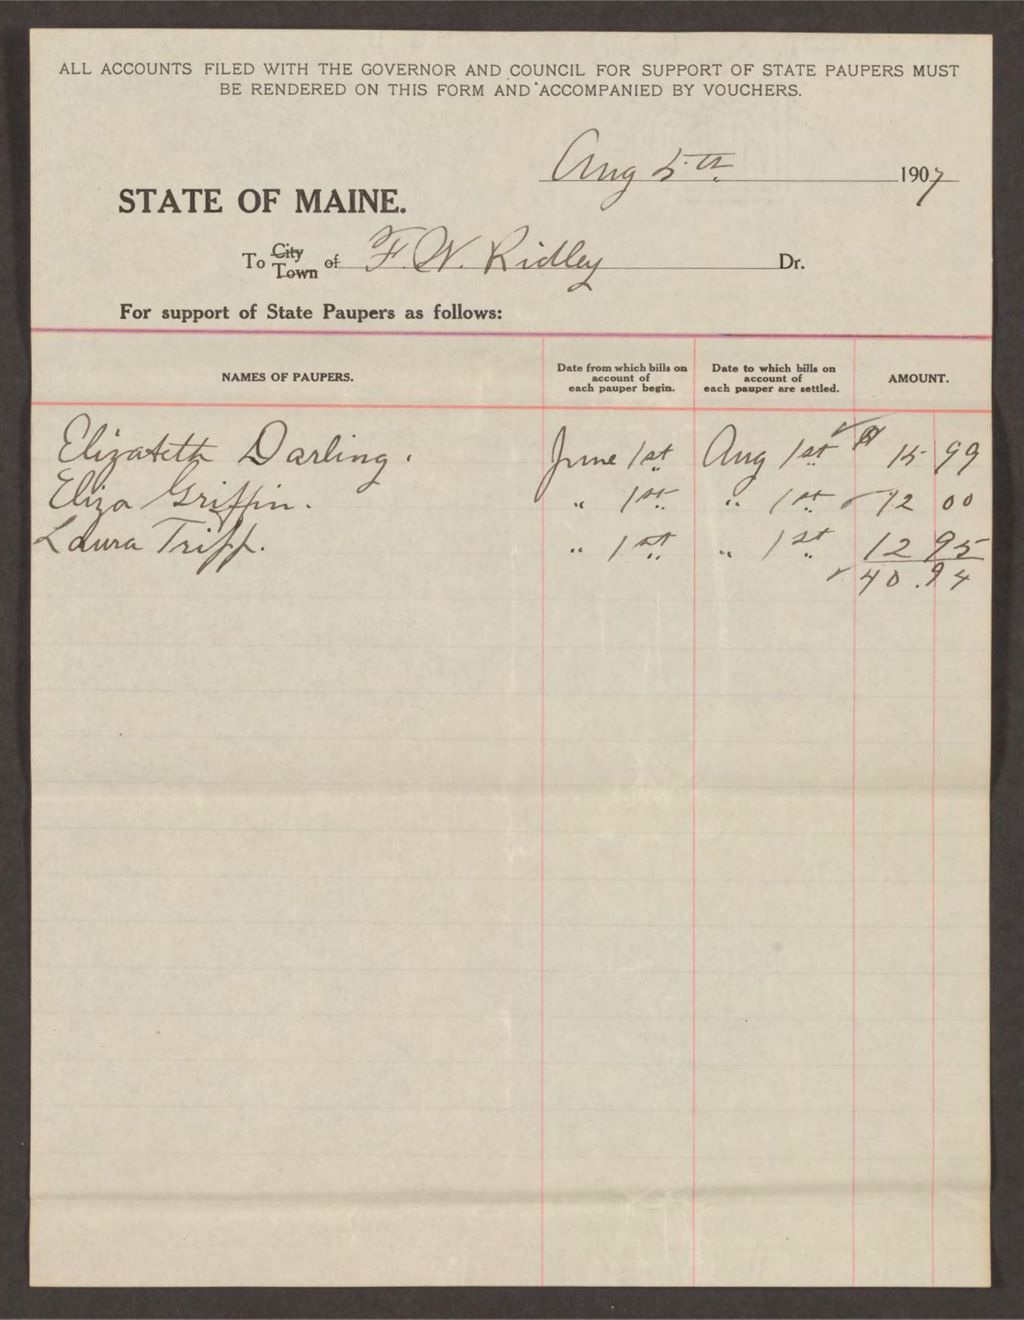 ALL ACCOUNTS FILED WITH THE GOVERNOR AND COUNCIL FOR SUPPORT OF STATE PAUPERS MUST
BE RENDERED ON THIS FORM AND ACCOMPANIED BY VOUCHERS.
Aug 5th 1907
STATE OF MAINE.
To City Town of F. W. Ridley Dr.
For support of State Paupers as follows:
NAMES OF PAUPERS. Date from which bills on account of each pauper begin. Date to which bills on account of each pauper are settled. AMOUNT.
Elizabeth Darling. June 1st Aug 1st $ 15 99
Eliza Griffin. " 1st " 1st 12 00
Laura Tripp. " 1st " 1st 12 95
40.94